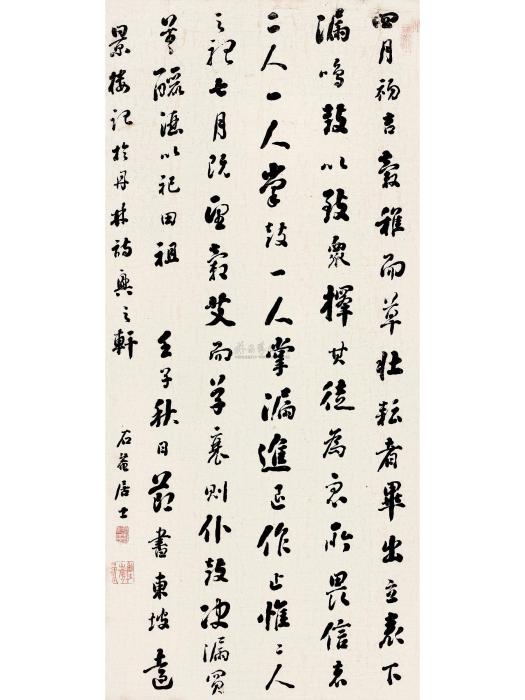 四月初吉穀稚而草壯耘者畢出立表下
漏鳴鼓以致衆擇其徒為衆所畏信者
二人一人掌鼓一人掌漏進退作止惟二人
之聽七月既望穀艾而草衰則仆鼓決漏買
羊釃酒以祀田祖 壬子秋日節書東坡遠
景樓記於丹林詩興之軒 石菴居士